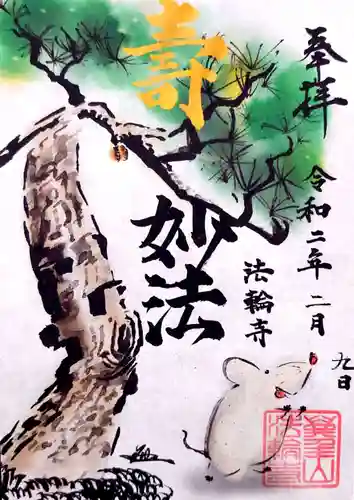 奉拝
令和二年二月
九日
寿
妙法
法輪寺